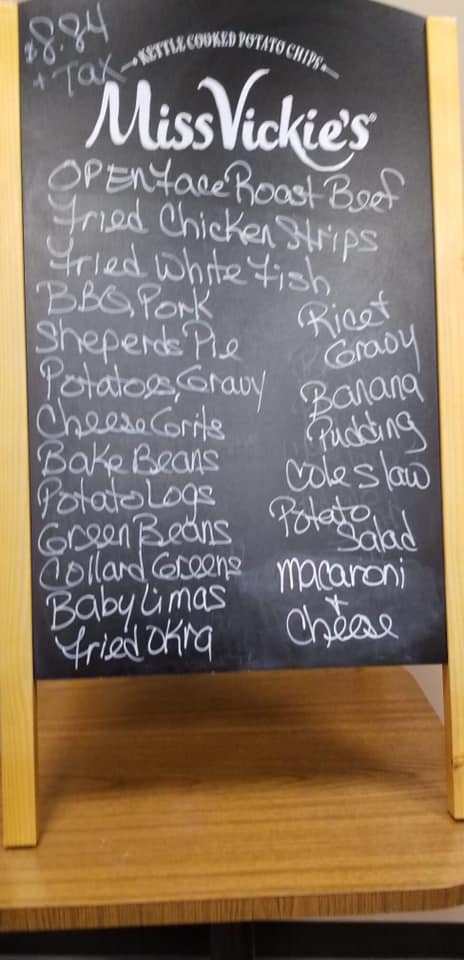 $8.84
+ Tax
KETTLE COOKED POTATO CHIPS
Miss Vickie's®
OPEN Face Roast Beef
Fried Chicken Strips
Fried White Fish
BBQ Pork
Sheperds Pie
Potatoes, Gravy
Cheese Grits
Bake Beans
Potato Logs
Green Beans
Collard Greens
Baby Limas
Fried Okra
Rice +
Gravy
Banana
Pudding
Cole slaw
Potato
Salad
macaroni
+
Cheese